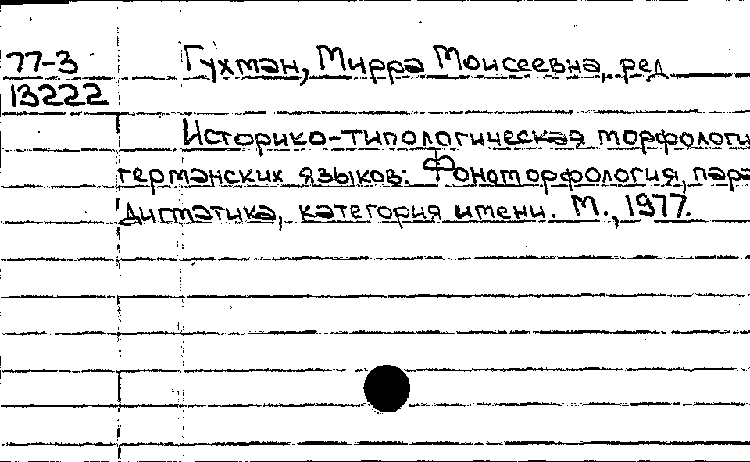 77-3 Гухман, Мирра Моисеевна, ред
13222
Историко-типологическая морфологи
германских языков: Фономорфология, пара
дигматика, категория имени. М., 1977.